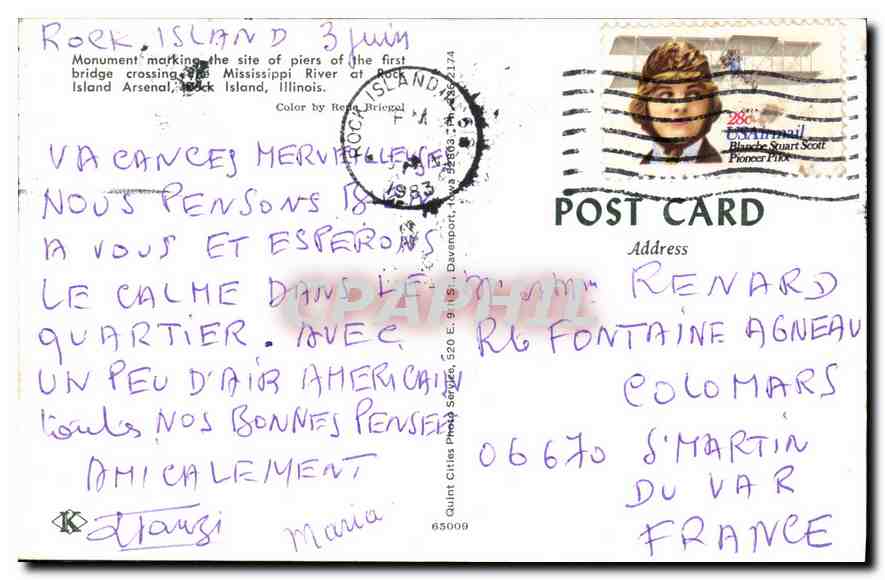 ROCK ISLAND 3 juin
Monument marking the site of piers of the first
bridge crossing the Mississippi River at Rock
Island Arsenal, Rock Island, Illinois.
Color by Rene Briegel
VACANCES MERVEILLEUSES
NOUS PENSONS BIEN
A VOUS ET ESPERONS
LE CALME DANS LE
QUARTIER. AVEC
UN PEU D'AIR AMERICAIN
toutes NOS BONNES PENSEES
AMICALEMENT
Maria
K
65009
Quint Cities Photo Service, 520 E. 9th St., Davenport, Iowa 52803
ROCK ISLAND
1983
28c
USAirmail
Blanche Stuart Scott
Pioneer Pilot
POST CARD
Address
RENARD
FONTAINE AGNEAU
COLOMARS
06670 S'MARTIN
DU VAR
FRANCE
CPAPHIL